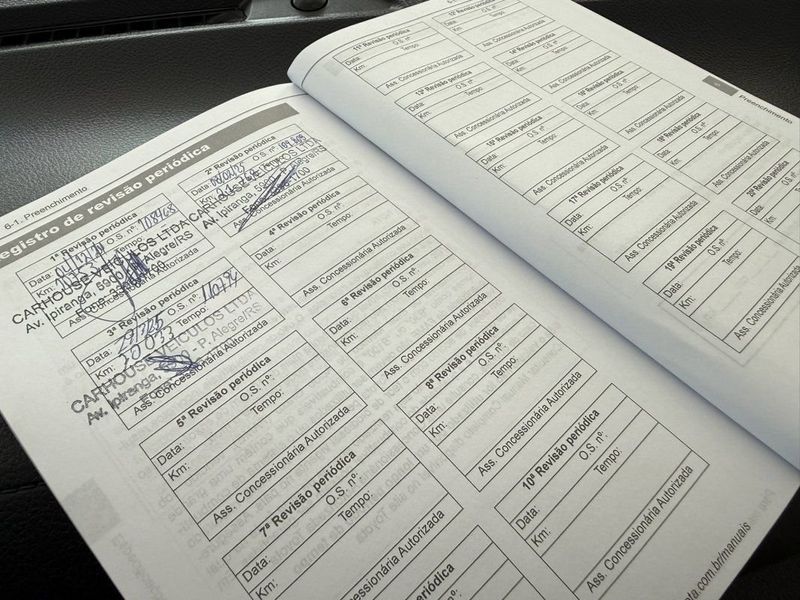 6-1. Preenchimento
Registro de revisão periódica
1ª Revisão periódica
Data:
O.S. nº: 108468
Km:
Tempo:
CARHOUSE VEÍCULOS LTDA
Av. Ipiranga, 5900
P. Alegre/RS
Ass. Concessionária Autorizada
2ª Revisão periódica
Data:
O.S. nº:
Km:
CARHOUSE VEÍCULOS LTDA
Av. Ipiranga, 5900
P. Alegre/RS
Ass. Concessionária Autorizada
3ª Revisão periódica
Data:
O.S. nº:
Km: 30 033
Tempo:
CARHOUSE VEÍCULOS LTDA
Av. Ipiranga,
P. Alegre/RS
Ass. Concessionária Autorizada
4ª Revisão periódica
Data:
O.S. nº:
Km:
Tempo:
Ass. Concessionária Autorizada
5ª Revisão periódica
Data:
O.S. nº:
Km:
Tempo:
Ass. Concessionária Autorizada
6ª Revisão periódica
Data:
O.S. nº:
Km:
Tempo:
Ass. Concessionária Autorizada
7ª Revisão periódica
Data:
O.S. nº:
Km:
Tempo:
Ass. Concessionária Autorizada
8ª Revisão periódica
Data:
O.S. nº:
Km:
Tempo:
Ass. Concessionária Autorizada
Revisão periódica
O.S. nº:
10ª Revisão periódica
Data:
O.S. nº:
Km:
Tempo:
Ass. Concessionária Autorizada
ta.com.br/manuais
Preenchimento
11ª Revisão periódica
Data:
O.S. nº:
Km:
Tempo:
Ass. Concessionária Autorizada
12ª Revisão periódica
Data:
O.S. nº:
Km:
Tempo:
Ass. Concessionária Autorizada
13ª Revisão periódica
Data:
O.S. nº:
Km:
Tempo:
Ass. Concessionária Autorizada
14ª Revisão periódica
Data:
O.S. nº:
Km:
Tempo:
Ass. Concessionária Autorizada
15ª Revisão periódica
Data:
O.S. nº:
Km:
Tempo:
Ass. Concessionária Autorizada
16ª Revisão periódica
Data:
O.S. nº:
Km:
Tempo:
Ass. Concessionária Autorizada
17ª Revisão periódica
Data:
O.S. nº:
Km:
Tempo:
Ass. Concessionária Autorizada
18ª Revisão periódica
Data:
O.S. nº:
Km:
Tempo:
Ass. Concessionária Autorizada
19ª Revisão periódica
Data:
O.S. nº:
Km:
Tempo:
Ass. Concessionária Autorizada
20ª Revisão periódica
Data:
Km:
Ass. Concessionária